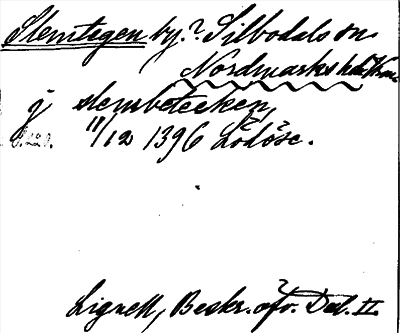 Stemtegen by.? Silbodals sn
Nordmarks hd
j stensbetecken,
11/12 1396 Lödöse.
Lignell, Beskr. öfv. Dal. II